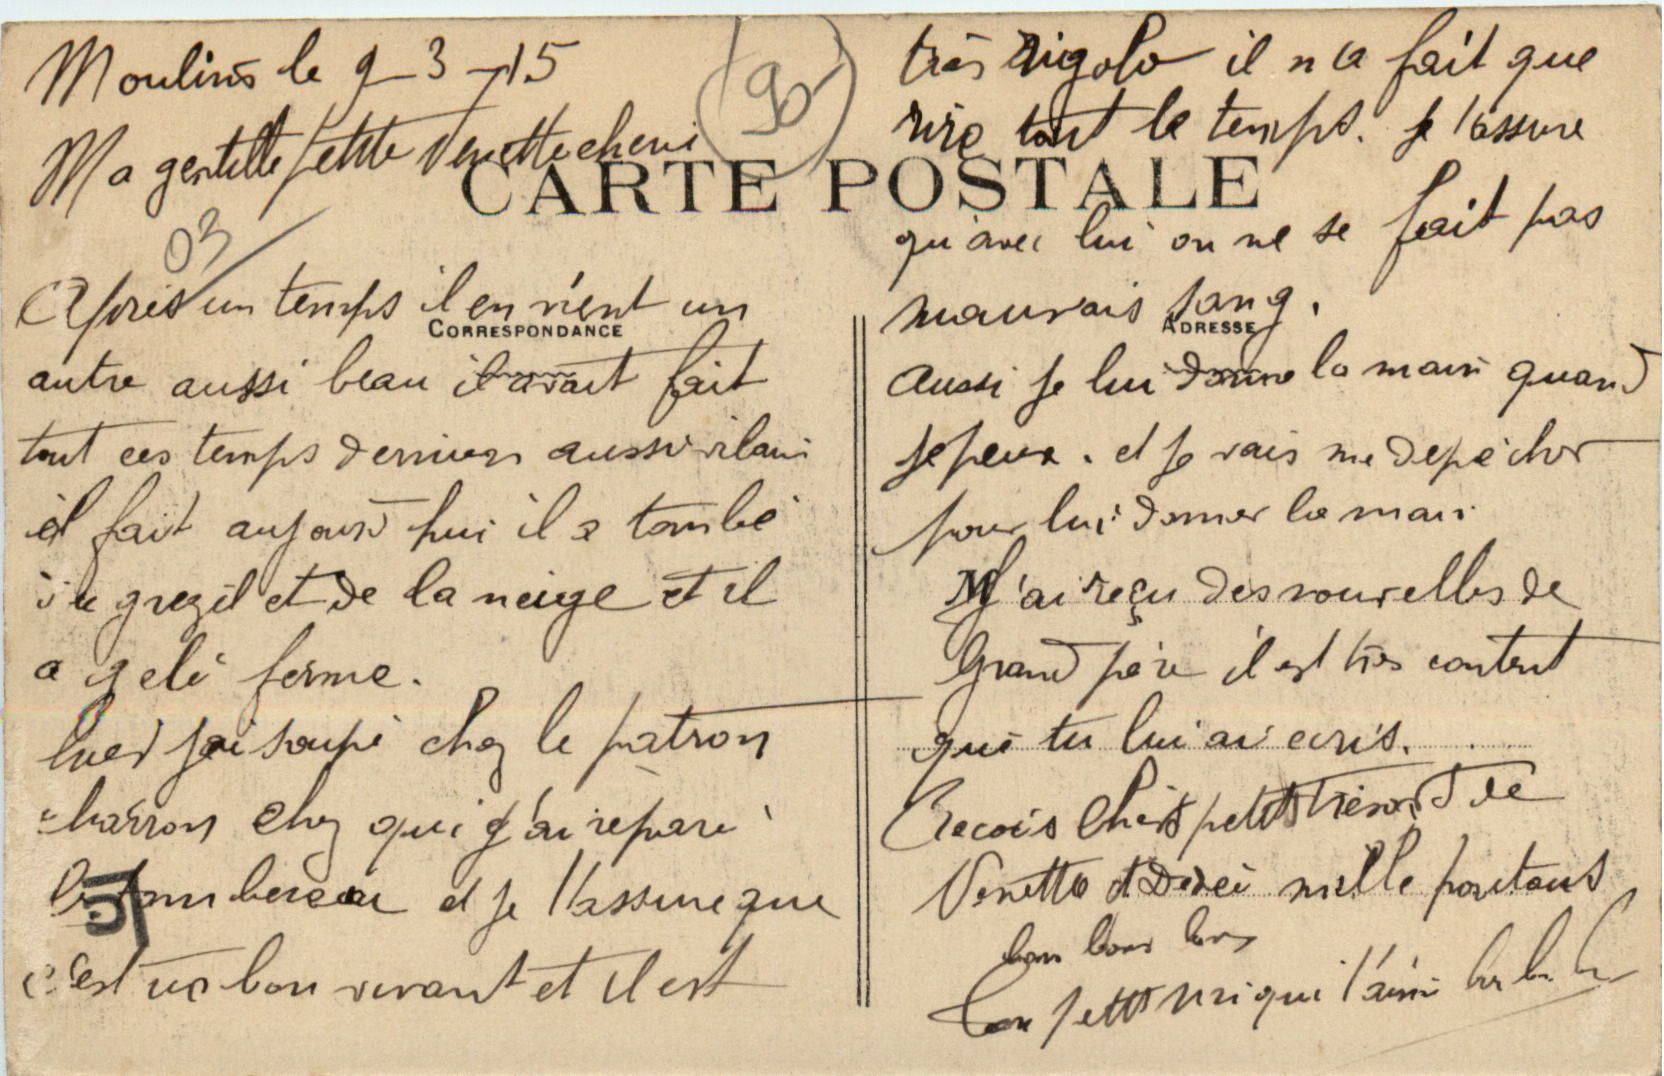 Moulins le 9-3-15
Ma gentille petite Venette cheri
90
CARTE POSTALE
03
Après un temps il en vient un
CORRESPONDANCE
autre aussi beau il avait fait
tout ces temps derniers aussi vilain
il fait aujourd hui il a tombé
du grezil et de la neige et il
a gelé ferme.
hier j'ai soupé chez le patron
charron chez qui j'ai réparé
tombereau et je t'assure que
c'est un bon vivant et il est
très rigolo il n'a fait que
rire tout le temps. je t'assure
qu'avec lui on ne se fait pas
mauvais sang.
ADRESSE
aussi je lui donne la main quand
je peux. et je vais me depêcher
pour lui donner la main
J'ai reçu des nouvelles de
Grand père il est très content
que tu lui ai ecris.
Recois Chers petits Trésors de
Venette et Dédé mille poutous
bons bons bons
Ton petit qui t'aime